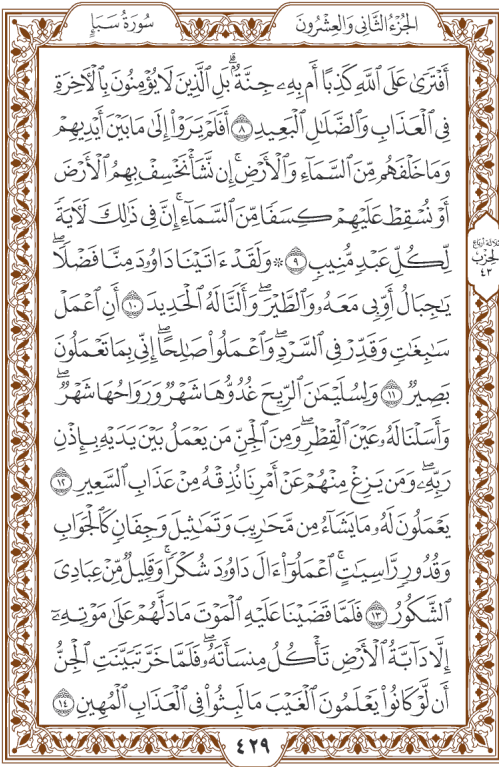 الجُزْءُ الثَّانِي وَالعِشْرُونَ
سُورَةُ سَبَإٍ
أَفْتَرَىٰ عَلَى ٱللَّهِ كَذِبًا أَم بِهِۦ جِنَّةٌۢ ۗ بَلِ ٱلَّذِينَ لَا يُؤْمِنُونَ بِٱلْأَخِرَةِ
فِى ٱلْعَذَابِ وَٱلضَّلَٰلِ ٱلْبَعِيدِ ٨ أَفَلَمْ يَرَوْا۟ إِلَىٰ مَا بَيْنَ أَيْدِيهِمْ
وَمَا خَلْفَهُم مِّنَ ٱلسَّمَآءِ وَٱلْأَرْضِ ۚ إِن نَّشَأْ نَخْسِفْ بِهِمُ ٱلْأَرْضَ
أَوْ نُسْقِطْ عَلَيْهِمْ كِسَفًا مِّنَ ٱلسَّمَآءِ ۚ إِنَّ فِى ذَٰلِكَ لَءَايَةً
لِّكُلِّ عَبْدٍ مُّنِيبٍ ٩ ۞ وَلَقَدْ ءَاتَيْنَا دَاوُۥدَ مِنَّا فَضْلًا ۖ
يَٰجِبَالُ أَوِّبِى مَعَهُۥ وَٱلطَّيْرَ ۖ وَأَلَنَّا لَهُ ٱلْحَدِيدَ ١٠ أَنِ ٱعْمَلْ
سَٰبِغَٰتٍ وَقَدِّرْ فِى ٱلسَّرْدِ ۖ وَٱعْمَلُوا۟ صَٰلِحًا ۖ إِنِّى بِمَا تَعْمَلُونَ
بَصِيرٌ ١١ وَلِسُلَيْمَٰنَ ٱلرِّيحَ غُدُوُّهَا شَهْرٌ وَرَوَاحُهَا شَهْرٌ ۖ
وَأَسَلْنَا لَهُۥ عَيْنَ ٱلْقِطْرِ ۖ وَمِنَ ٱلْجِنِّ مَن يَعْمَلُ بَيْنَ يَدَيْهِ بِإِذْنِ
رَبِّهِۦ ۖ وَمَن يَزِغْ مِنْهُمْ عَنْ أَمْرِنَا نُذِقْهُ مِنْ عَذَابِ ٱلسَّعِيرِ ١٢
يَعْمَلُونَ لَهُۥ مَا يَشَآءُ مِن مَّحَٰرِيبَ وَتَمَٰثِيلَ وَجِفَانٍ كَٱلْجَوَابِ
وَقُدُورٍ رَّاسِيَٰتٍ ۚ ٱعْمَلُوٓا۟ ءَالَ دَاوُۥدَ شُكْرًا ۚ وَقَلِيلٌ مِّنْ عِبَادِىَ
ٱلشَّكُورُ ١٣ فَلَمَّا قَضَيْنَا عَلَيْهِ ٱلْمَوْتَ مَا دَلَّهُمْ عَلَىٰ مَوْتِهِۦٓ
إِلَّا دَآبَّةُ ٱلْأَرْضِ تَأْكُلُ مِنسَأَتَهُۥ ۖ فَلَمَّا خَرَّ تَبَيَّنَتِ ٱلْجِنُّ
أَن لَّوْ كَانُوا۟ يَعْلَمُونَ ٱلْغَيْبَ مَا لَبِثُوا۟ فِى ٱلْعَذَابِ ٱلْمُهِينِ ١٤
ثلاثة أرباع
الحزب
٤٣
٤٢٩